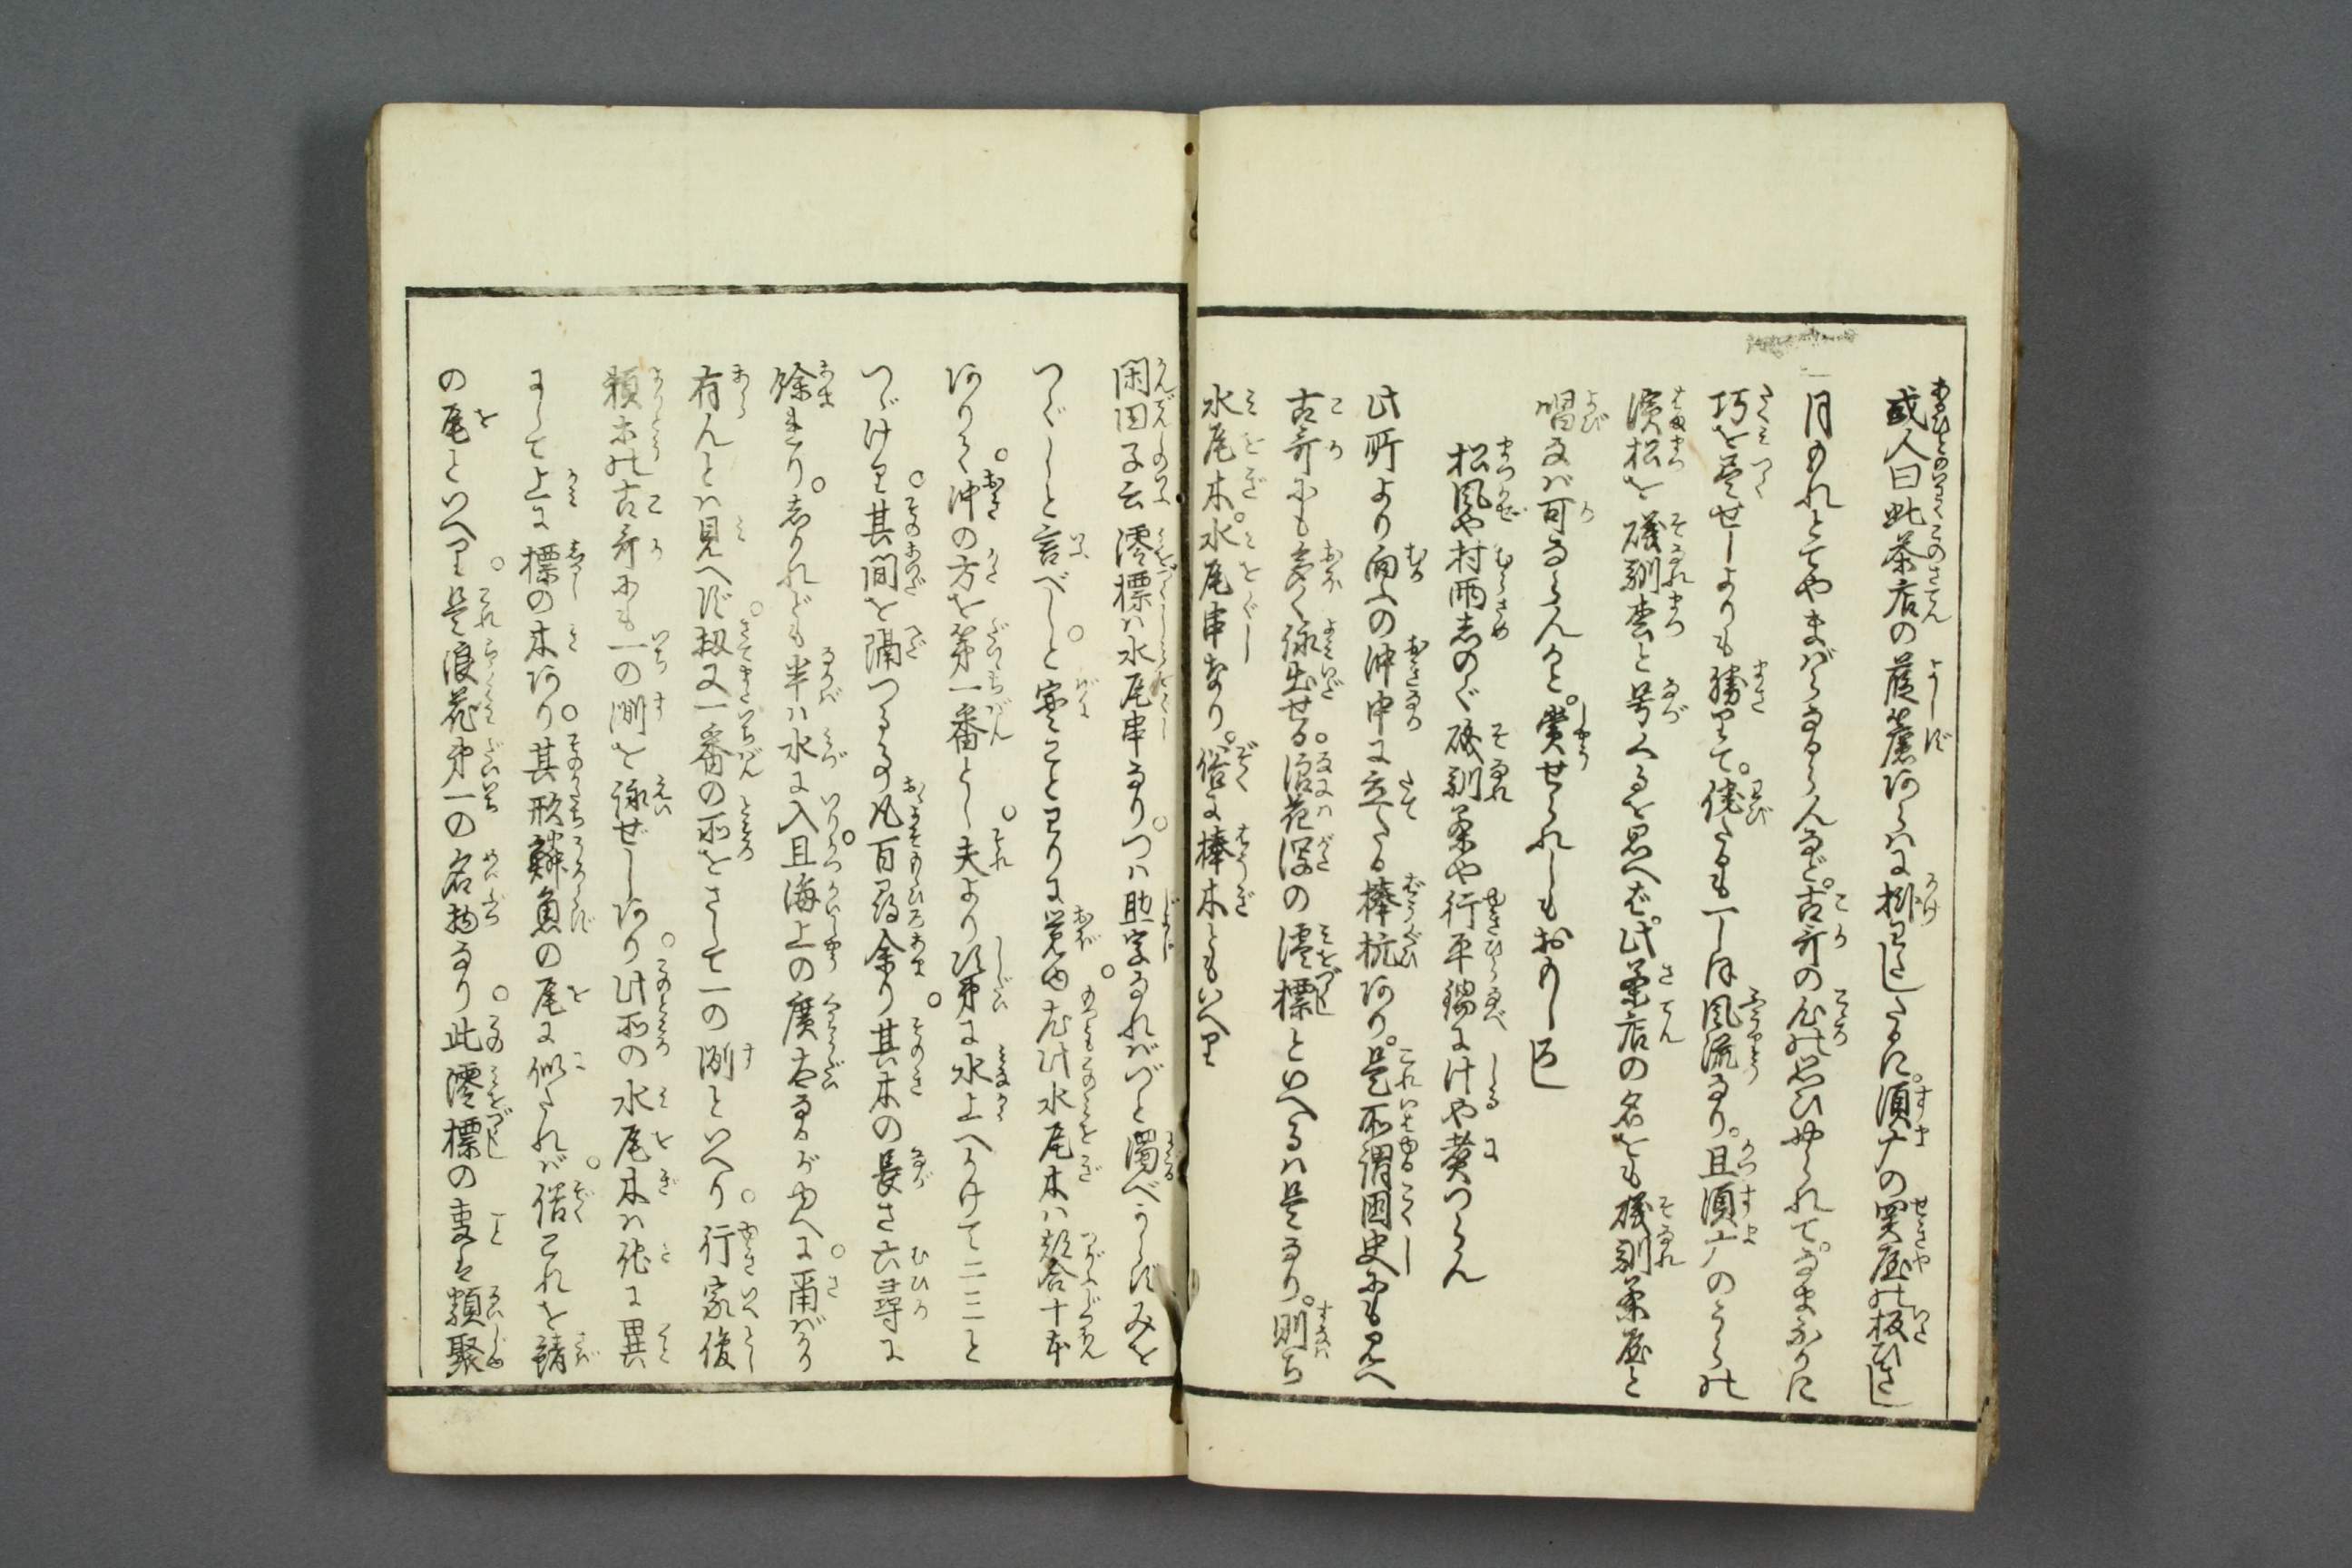 或人曰此茶店の葭簾あらはに掛わたしたるに。須广の関屋の板びさし
月もれとてやまばらなるらんなど。古哥の心の思ひやられて。なまなかに
巧を尽せしよりも勝りて。侘たるも一トしほ風流なり。且須广のうらの
濱松を磯馴松と号くるを思へば。此茶店の名をも磯馴茶屋と
唱なば可ならんかと。賞せられしもおかし
松風や村雨しのぐ磯馴茶や行平鍋にけや煑つらん
此所より向ふの沖中に立たる棒杭あり。是所謂国史にも見へ
古哥にも多く詠出せる。浪花潟の澪標といへるは是なり。則ち
水尾木。水尾串なり。俗に棒木ともいへり
閑田子云澪標は水尾串なり。つは助字なればづと濁べからずみを
つくしと言べしと。寔ことわりに覚ゆ尤此水尾木は都合十本
ありて。沖の方を第一番とし。夫より次第に水上へかけて二三と
つゞけり。其間を隔つるの凡百尋余り。其木の長さ六尋に
餘まり。しかれども半は水に入。且海上の廣太なるがゆへに。甫ばかり
有んとは見へず。扨又一番の所をさして一の洲といへり。行家俊
頼等の古哥にも一の洲を詠ぜしあり。此所の水尾木は他に異
にして上に標の木あり。其形鱗魚の尾に似たれば。俗これを鯖
の尾といへり。是浪花第一の名物なり。此澪標の事を類聚